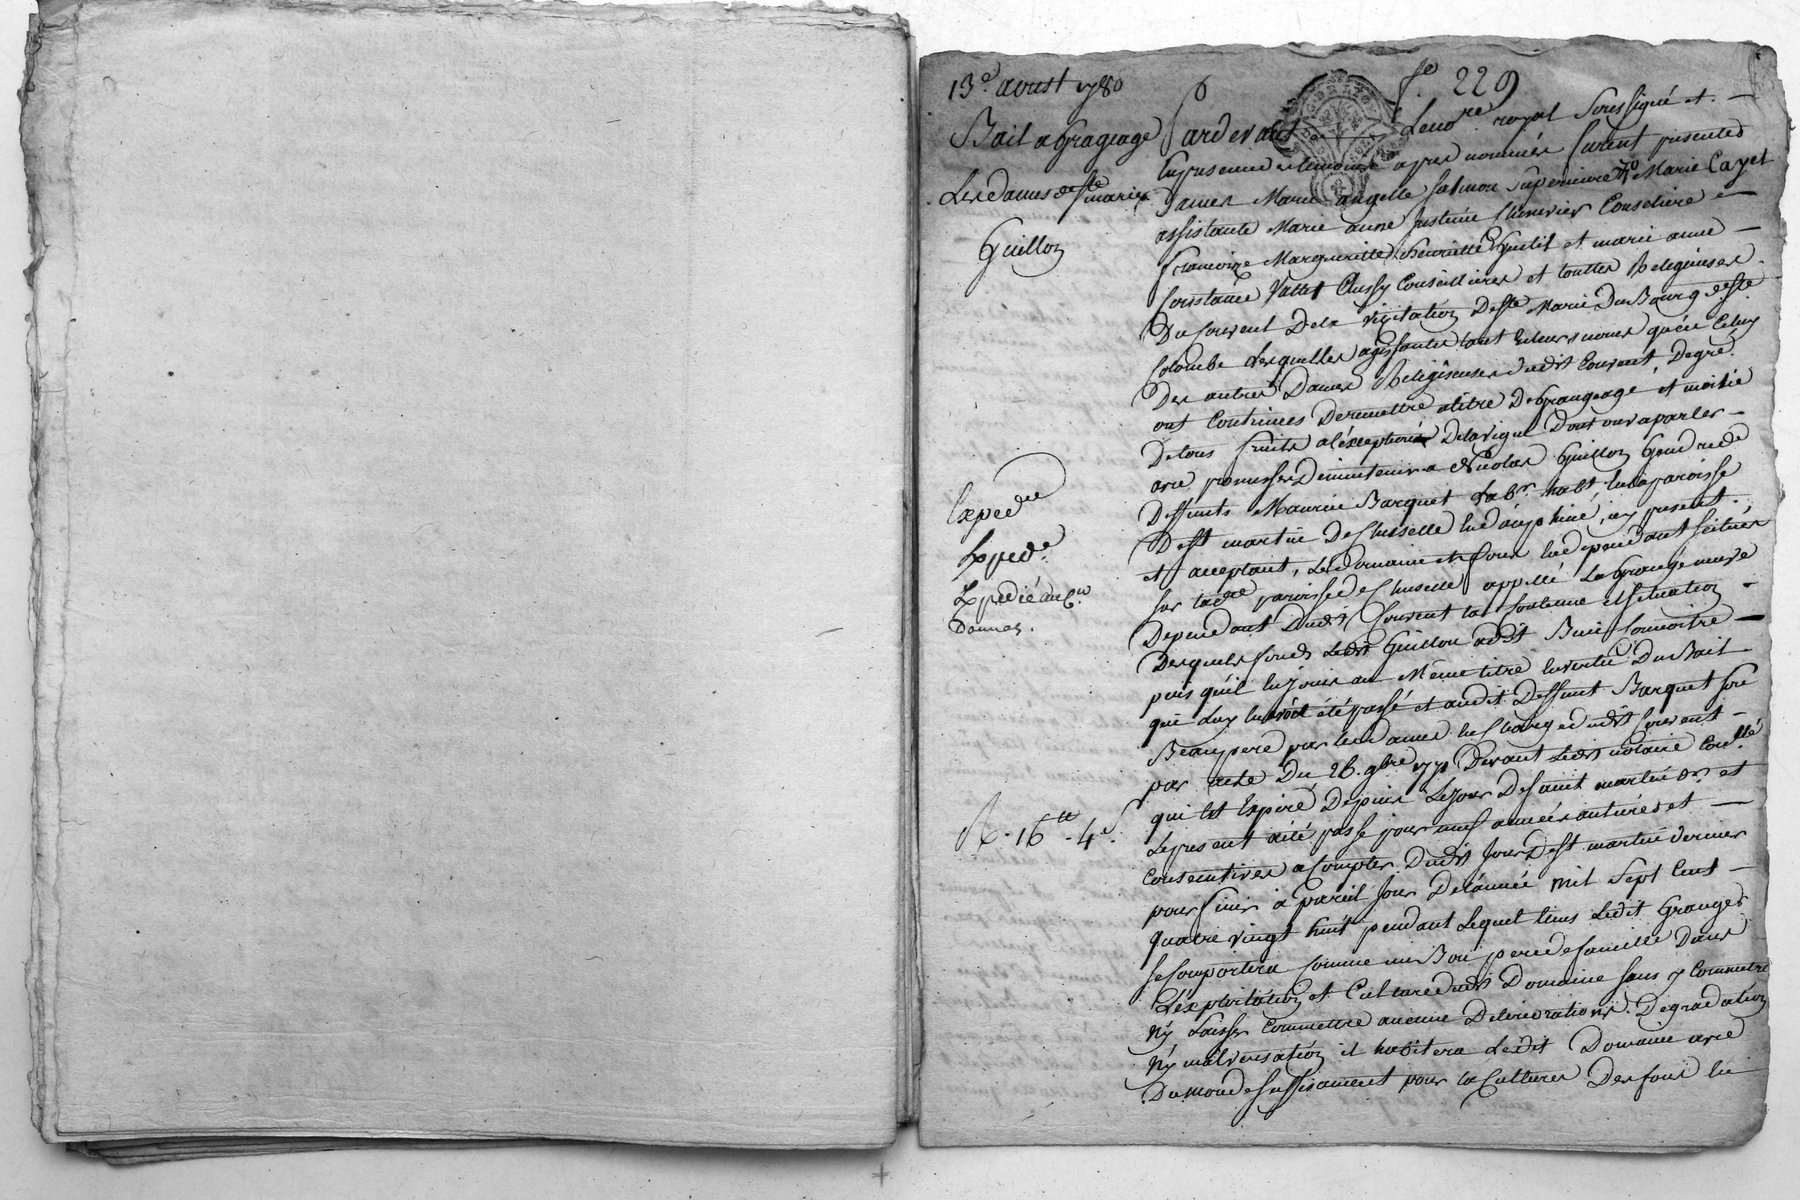 13e. aoust 1780
f.e 229
Bail a Grageage
Les dames de Ste marie
Guillon
Expedée
Expedé.
Expedié aux
Dames.
R. 16tt. 4s.
Pardevant Le nore royal Soussigné et
En presence des temoins apres nommés furent presentes
Dames Marie angelle Salmon superieure, Marie Cayet
assistante Marie anne justine Chenevier Conseliere
francoize Margueritte henriette Gentil et marie anne
Constance Vallet Clussy Conseillieres et touttes Religieuses
Du Couvent Dela vizitation De Ste Marie Du Bourg de Ste
Colombe Lesquelles agissantes tant En leurs noms qu'en Celuy
Des autres Dames Religieuses dudit Couvent, De gré
ont Continués De remettre a titre De Grangeage et moitié
De tous fruits a l'exception De la vigne Dont on va parler
avec promesses De maintenir a Nicolas Guillon Gendre de
Deffunts Maurice Barquet Labr. habt. En la paroisse
De St martin De Chuselle En dauphiné, icy present
et acceptant, Le Domaine et fonds En dependant scitués
sur ladte paroisse de Chuselle appellé La Grange neuve
Dependant Dudit Couvent la Contenue et situation
Desquels fonds Ledit Guillon a dit Bien Connoitre
puis qu'il En jouis au Même titre En vertu Du Bail
qui Luy En avoit été passé et audit Deffunt Barquet son
Beaupere par les dames En Charge dudit Couvent
par acte Du 26. 9bre 1771 Devant Ledit notaire Conllé
qui Est Expiré Depuis Le jour De saint martin dr. et
Le present a été passé pour neuf années entieres et
Consecutives a Compter Dudit Jour De St. martin dernier
pour finir a pareil Jour De l'année Mil Sept Cent
quatre vingt huit pendant Lequel tems Ledit Granger
se Comportera Comme un Bon pere de famille Dans
L'exploitation et Culture dudit Domaine sans y Commettre
Ny Laisser Commettre aucune Deteriorations Degradation
Ny malversation il habitera Ledit Domaine avec
Du monde suffisament pour la Culture Des fond En